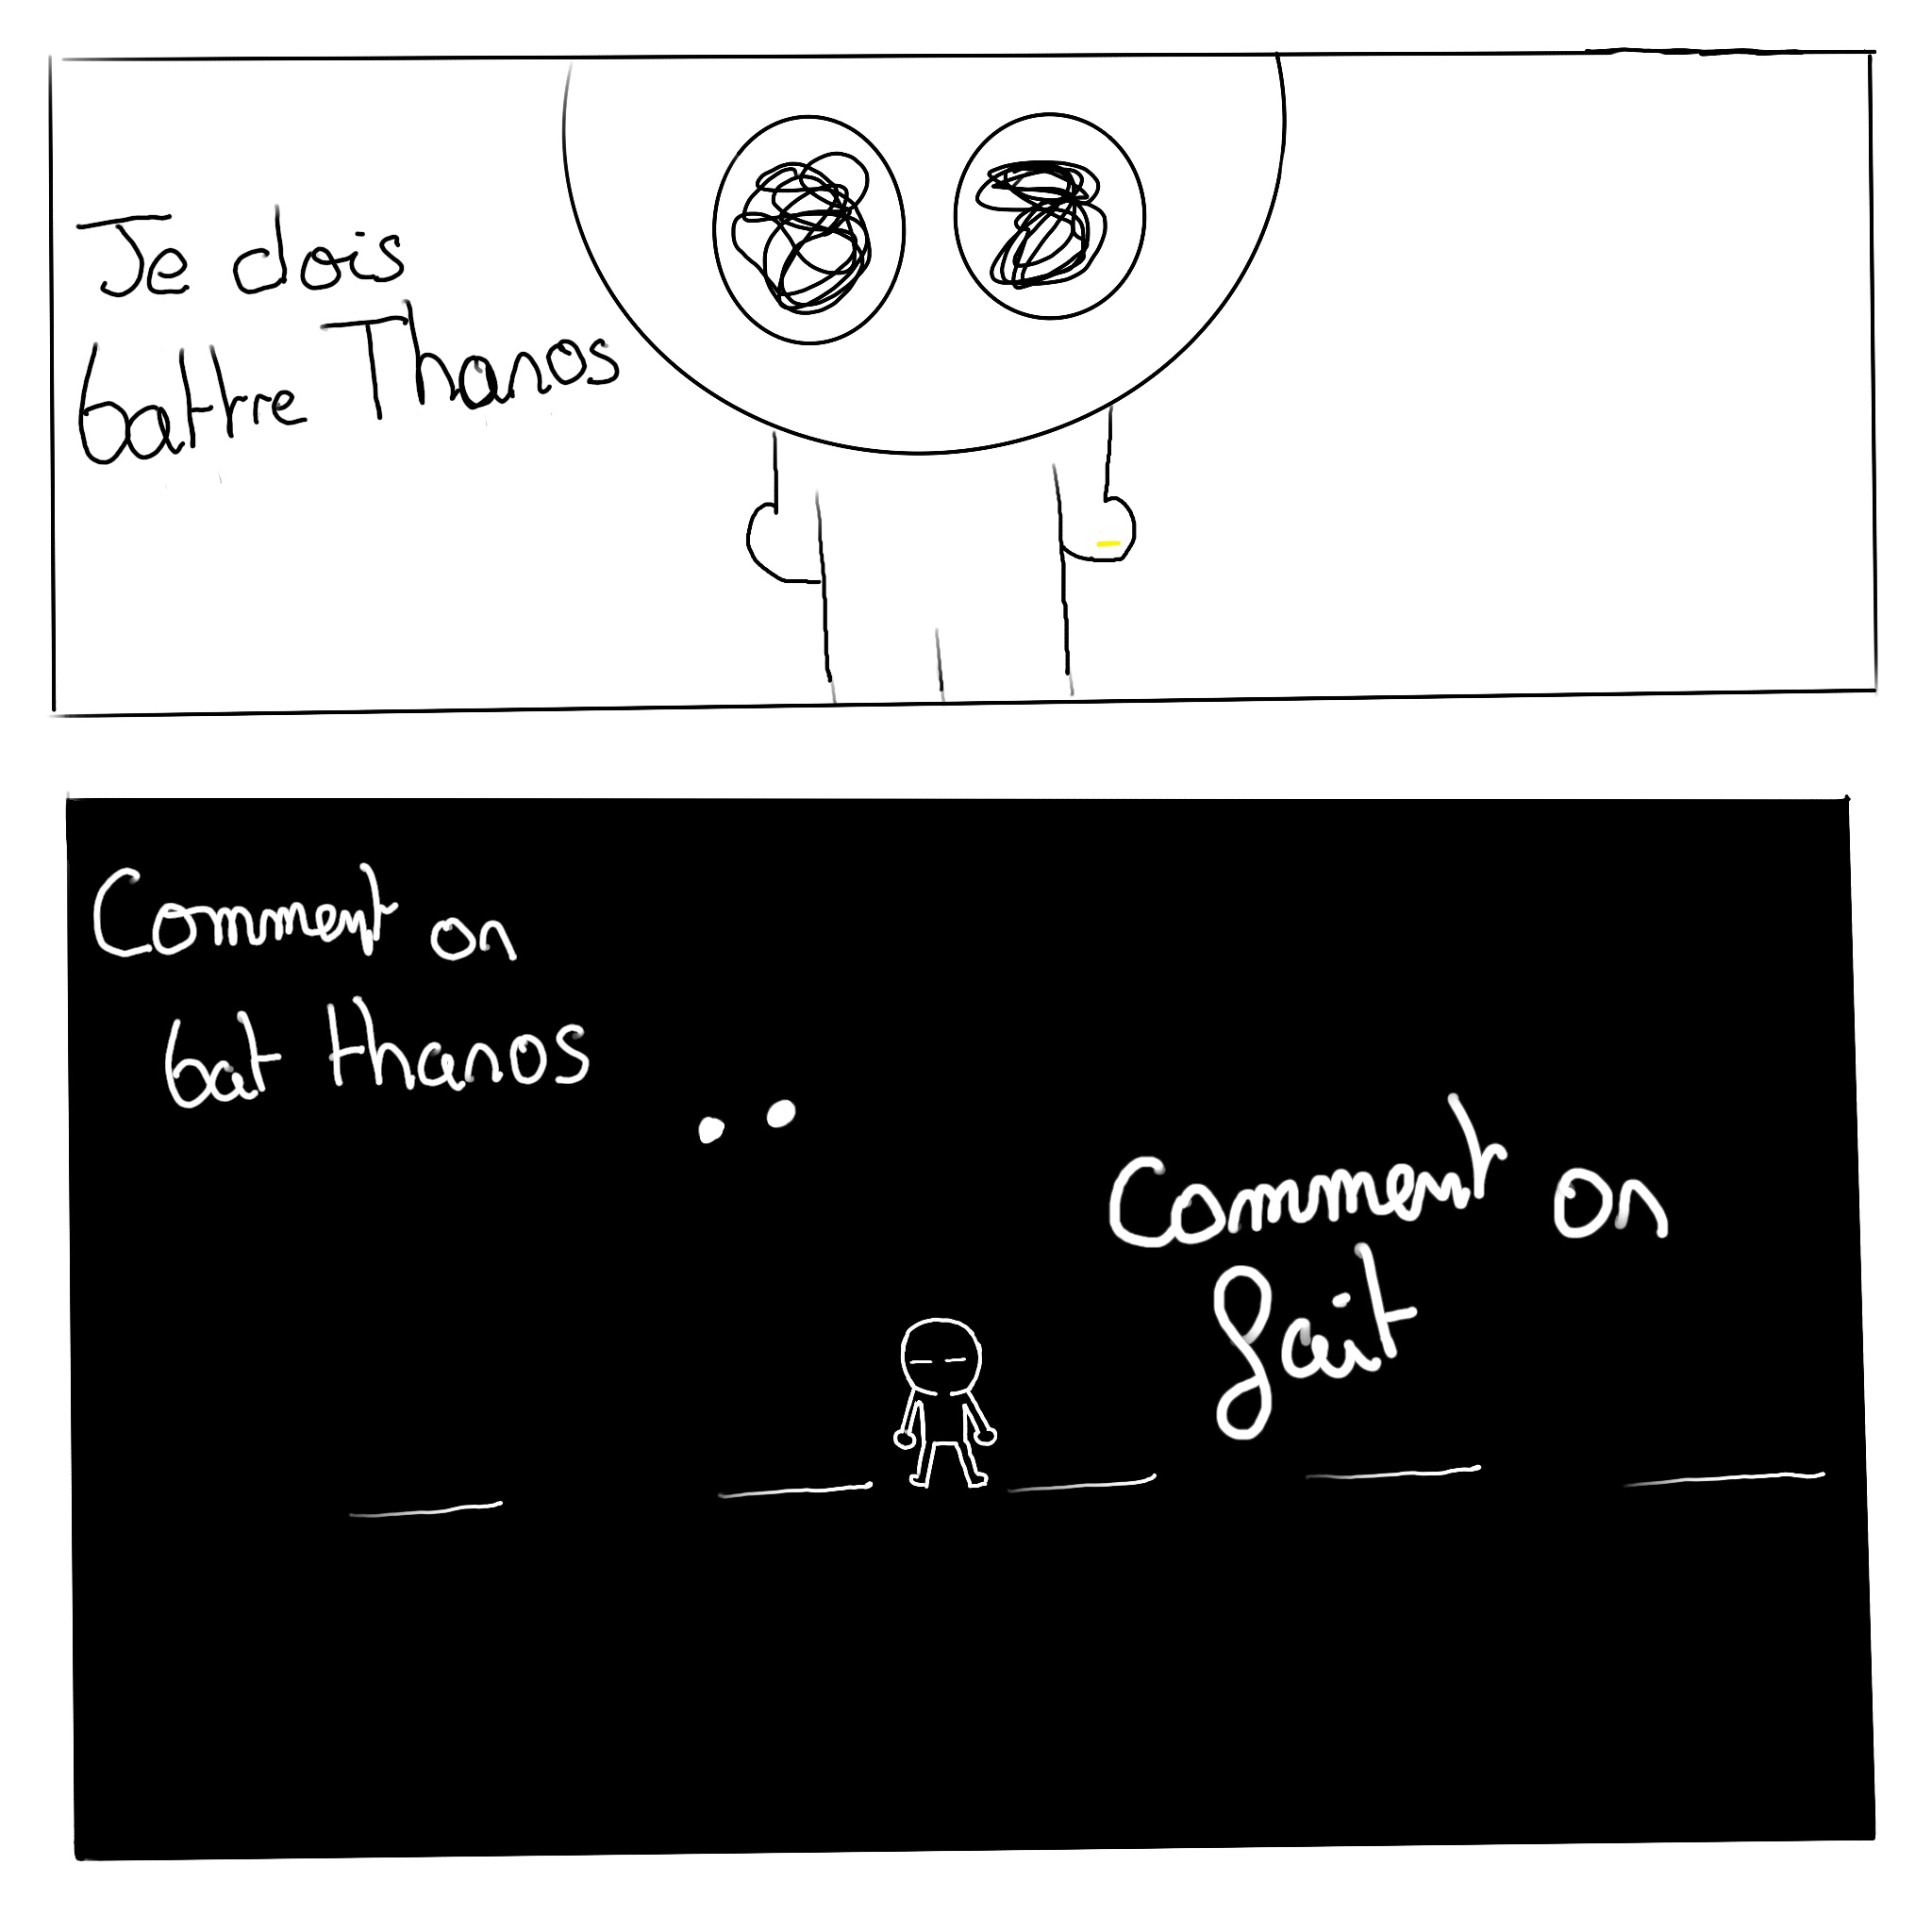 Je dois
battre Thanos
Comment on
bat thanos
..
Comment on
fait